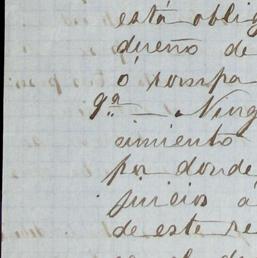 está oblig
dueño de
ó rompa
9.ª — Ning
amiento
por donde
juicios á
de este re